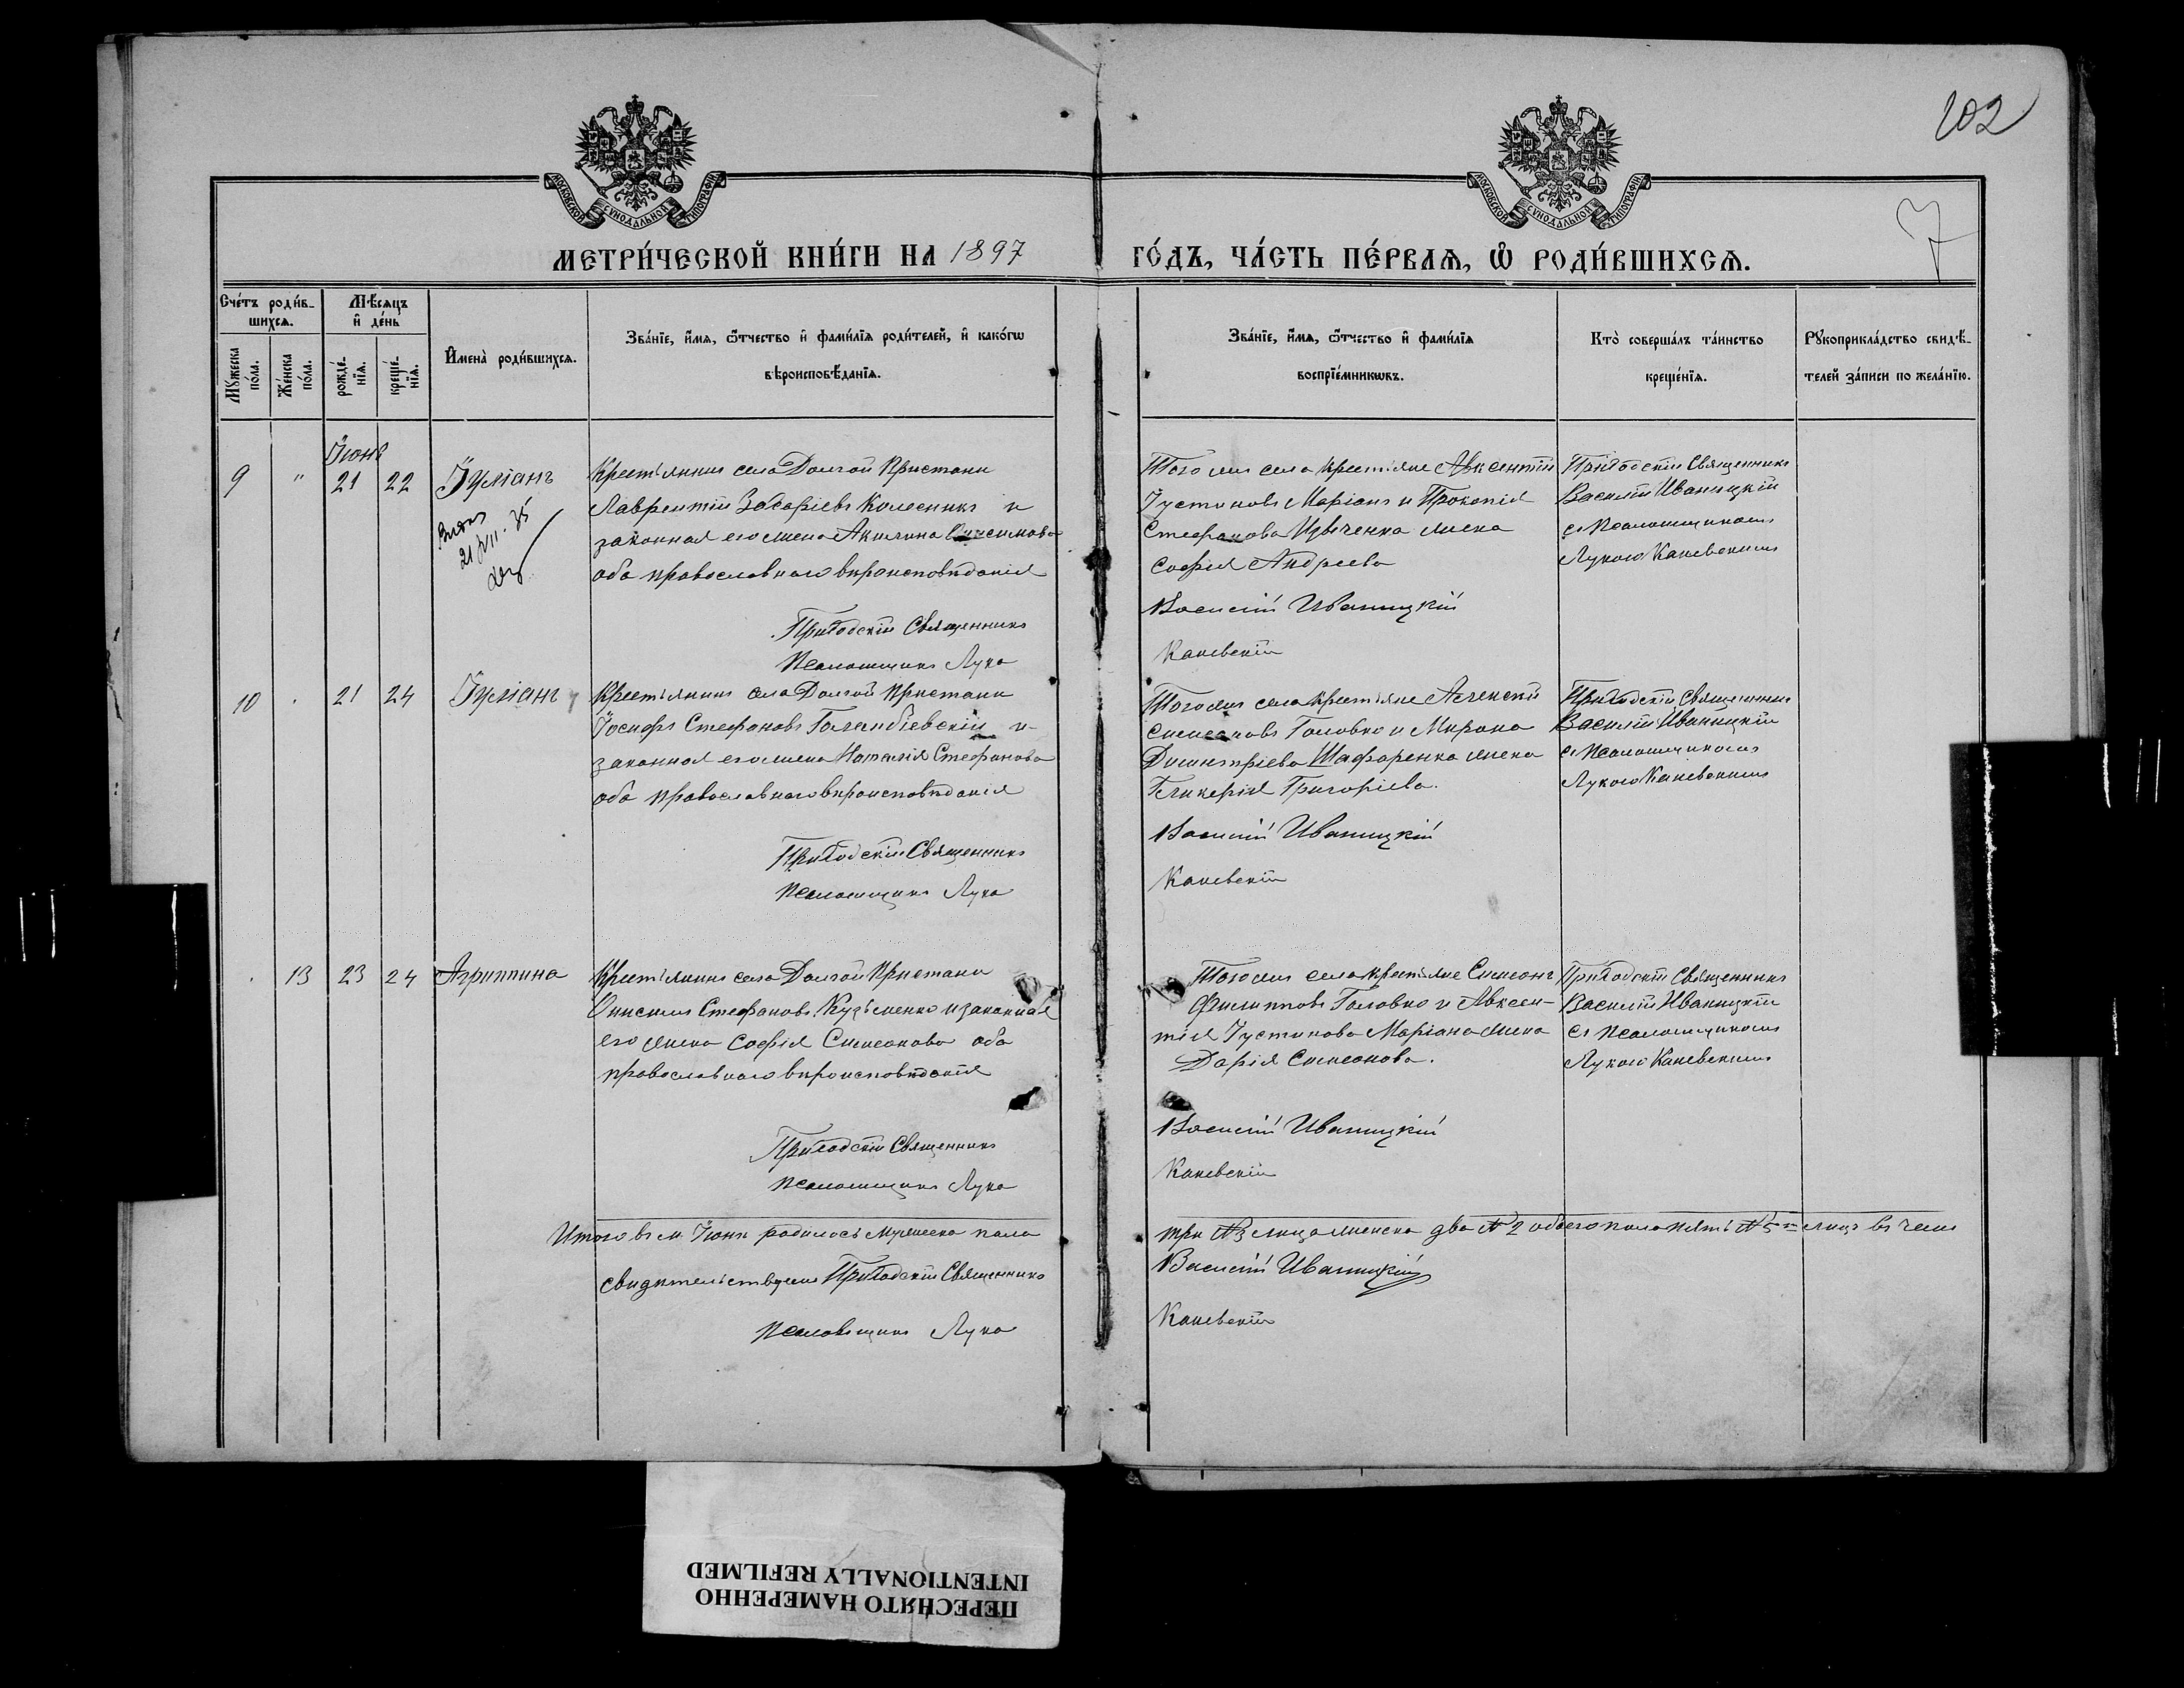 102
7
МОСКОВСКОЙ СѴНОДАЛЬНОЙ ТИПОГРАФІИ
МОСКОВСКОЙ СѴНОДАЛЬНОЙ ТИПОГРАФІИ
МЕТРИ́ЧЕСКОЙ КНИ́ГИ НА 1897
ГО́ДЪ, ЧА́СТЬ ПЕ́РВАѦ, Ѡ҆ РОДИ́ВШИХСѦ.
Сче́тъ роди́в-
шихсѧ.
Мꙋ́жеска по́ла.
Же́нска по́ла.
Мѣ́сѧцъ
и҆ де́нь
рожде́-
нїѧ.
креще́-
нїѧ.
И҆мена̀ роди́вшихсѧ.
Зва́нїе, и҆́мѧ, ѻ҆́тчество и҆ фами́лїѧ роди́телей, и҆ како́гѡ
вѣроисповѣ́данїѧ.
Зва́нїе, и҆́мѧ, ѻ҆́тчество и҆ фами́лїѧ
воспрїе́мникѡвъ.
Кто̀ соверша́лъ та́инство
креще́нїѧ.
Рꙋкоприкла́дство свидѣ́-
телей за́писи по жела́нїю.
Іюнь
9 " 21 22 Іуліанъ
21/VII. 35
Крестьянинъ села Долгой Пристани
Лаврентій Захаріевъ Колесникъ и
законная его жена Акилина Онисимова
оба православнаго вѣроисповѣданія
Приходскій Священникъ
Псаломщикъ Лука
Того же села крестьяне Авксентій
Іустиновъ Маріанъ и Прокопія
Стефанова жена
Софія Андреева
Василій Иваницкій
Каневскій
Приходскій Священникъ
Василій Иваницкій
съ Псаломщикомъ
Лукою Каневскимъ
10 " 21 24 Іуліанъ
Крестьянинъ села Долгой Пристани
Іосифъ Стефановъ Голембіевскій и
законная его жена Наталія Стефанова
оба православнаго вѣроисповѣданія
Приходскій Священникъ
Псаломщикъ Лука
Того же села крестьяне
Симеоновъ Головко и Мирона
Димитріева Шафаренка жена
Гликерія Григоріева.
Василій Иваницкій
Каневскій
Приходскій Священникъ
Василій Иваницкій
съ Псаломщикомъ
Лукою Каневскимъ
" 13 23 24 Агриппина
Крестьянинъ села Долгой Пристани
Онисимъ Стефановъ Кузьменко и законная
его жена Софія Симеонова оба
православнаго вѣроисповѣданія
Приходскій Священникъ
Псаломщикъ Лука
Того же села крестьяне Симеонъ
Филипповъ Головко и Авксен-
тія Іустинова Маріана жена
Дарія Симеонова.
Василій Иваницкій
Каневскій
Приходскій Священникъ
Василій Иваницкій
съ Псаломщикомъ
Лукою Каневскимъ
Итого въ м. Іюнѣ родилось мужеска пола три №3 лица женска два №2 обоего пола пять №5= лицъ въ чемъ
свидѣтельствуемъ Приходскій Священникъ Василій Иваницкій
Псаломщикъ Лука Каневскій
ПЕРЕСНЯТО НАМЕРЕННО
INTENTIONALLY REFILMED